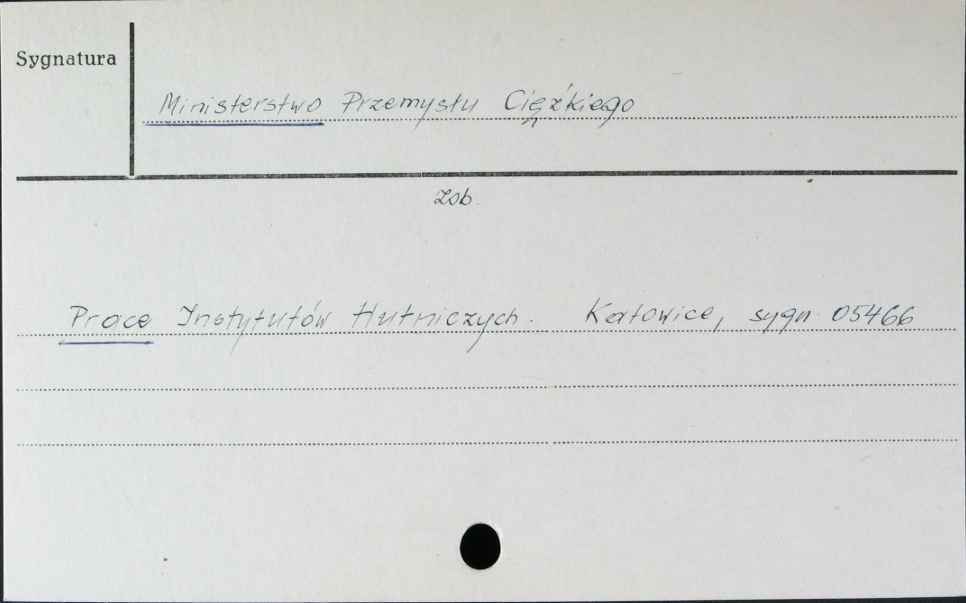 Sygnatura
Ministerstwo Przemysłu Ciężkiego
zob.
Prace Instytutów Hutniczych. Katowice, sygn. 05466